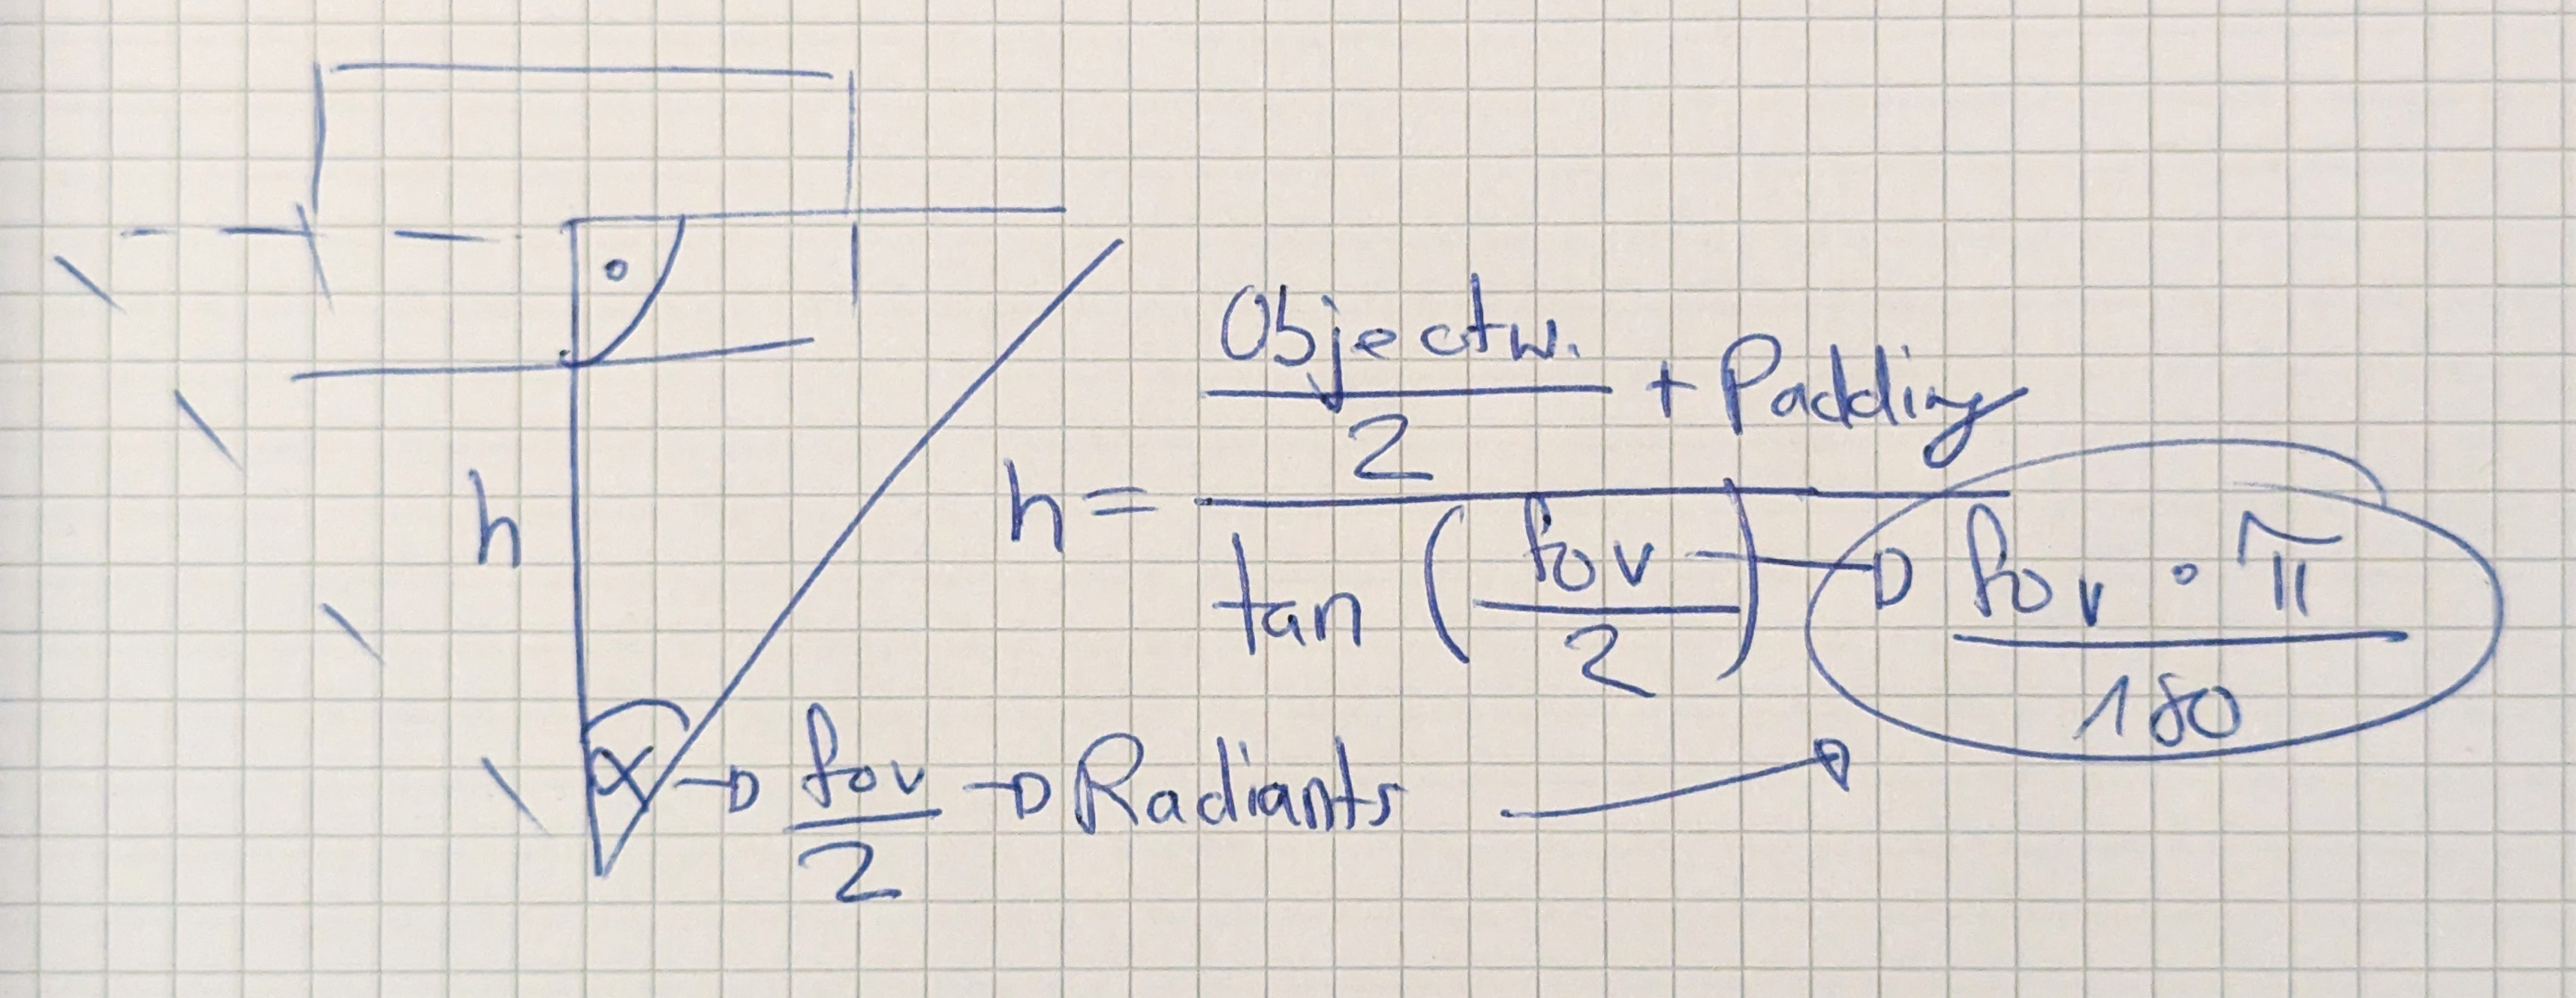 h
h = (Objectw./2 + Padding) / tan(fov/2) → fov · π / 180
α → fov/2 → Radiants